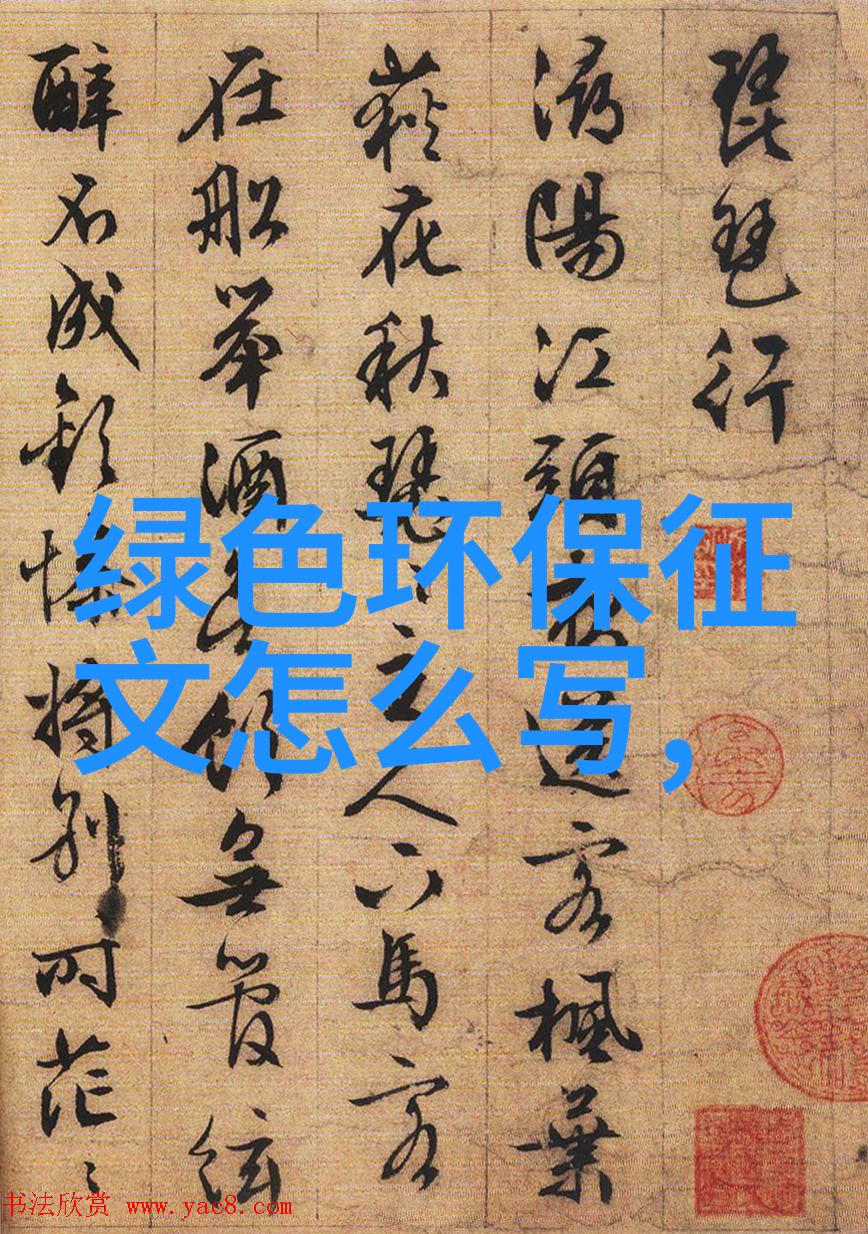 琵琶行
潯陽江頭夜送客楓葉
荻花秋瑟〻主人下馬客
在船举酒欲飲無管絃
醉不成歡慘將別〻时茫〻
绿色环保征
文怎么写，
书法欣赏 www.yac8.com